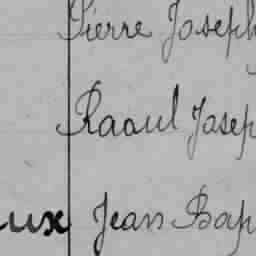 Pierre Joseph
Raoul Josep
ux Jean Bap